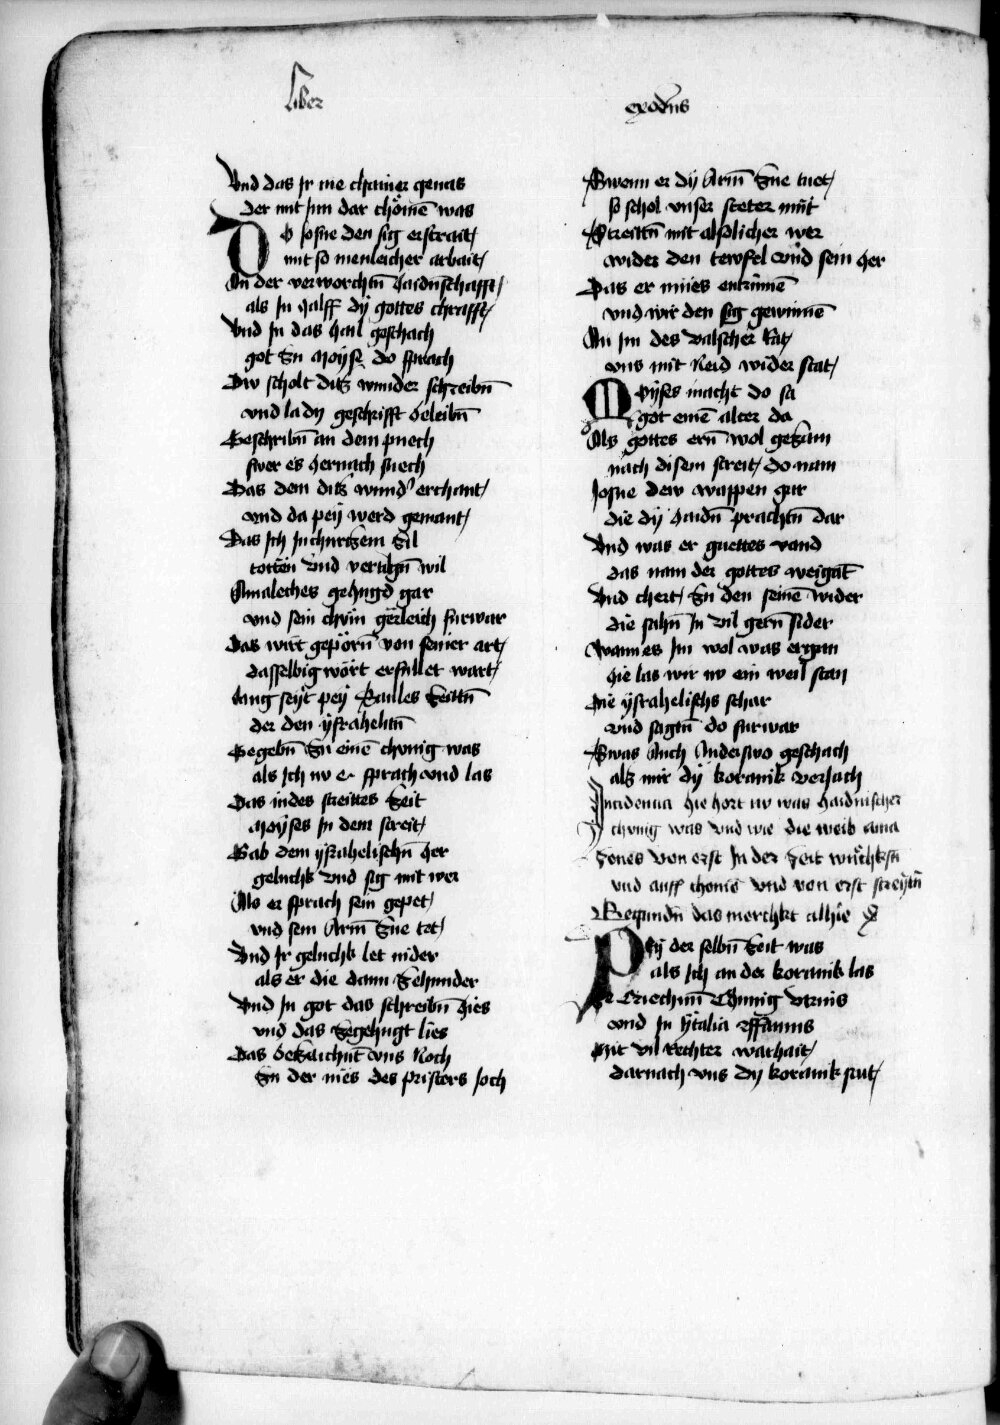 Liber
exodus
Vnd das Ir nie chainer genas
der mit Im dar chömē was
DO Josue den sig erstrait
mit so menleicher arbait
An der verworchtn̄ haidnschafft
als In half dÿ gottes chrafft
Vnd In das hail geschach
got zu Moyse do sprach
Dw scholt ditz wunder schreibn̄
vnd lady geschrifft beleibn̄
Beschribn̄ an dem puech
swer es hernach suech
Das dem ditz wund' erchant
vnd da peÿ werd gemant
Das Ich Inchurtzem zil
totten vnd vertilgn̄ wil
Amaleches gehugd gar
vnd sein chvn gërleich furwar
Das wart gepörn̄ von seiner art
dasselbig wort erfullet wart
lang seÿt peÿ Saules zeittn̄
der den ÿsrahelitn̄
Gegebn̄ zu einē chunig was
als Ich nv e sprach vnd las
Das indes streittes zeit
Moÿses In dem streit
Gab dem ÿsrahelischn̄ her
geluchk vnd sig mit wer
Als er sprach sein gepet
vnd sein Arm̄ zue tet
Vnd Ir geluchk let nider
als er die dann zehinder
Vnd In got das schreibn̄ hies
vnd das zegehugt lies
Das bezaichnt vns Noch
zu der mēs des pristers Joch
Swenn er dÿ Arm̄ zue tuet
so schol vnser steter mut
Streittn̄ mit alsolicher wer
wider den tewfel vnd sein her
Das er mues entrinnē
vnd wir den sig gewinnē
An Im des valscher Rat
vns mit Neid wider stat
MOÿses macht do sa
got einē alter da
Als gottes ern̄ wol gezam
nach disem streit do nam
Josue dew wappen gar
die dÿ haidn̄ prachtn̄ dar
Vnd was er guettes vand
das nam der gottes weigāt
Vnd chert zu den seinē wider
die sahn̄ In vil gern̄ sider
Wann es Im wol was ergan
hie las wir nv ein weil stan
Die ÿsrahelischs schar
vnd sagtn̄ do furwar
Swas Auch Anderswo geschach
als mir dÿ koranik veriach
hie hort nv was haidnischer
chvnig was vnd wie die weib ama
zones von erst In der zeit wuchksn̄
vnd auff chomē vnd von erst streÿtn̄
Begundn̄ das merchkt alhie
PEÿ der selbn̄ zeit was
als Ich an der koranik las
Chunig
vnd In ÿtalia
Mit vil Rechter warhait
darnach vns dÿ koranik sait